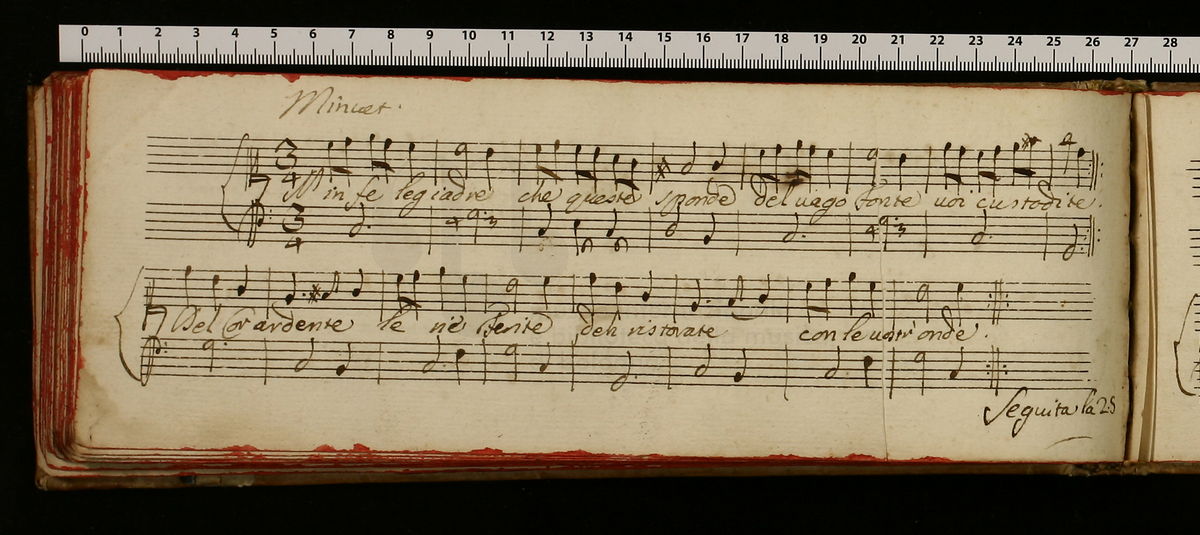 0 1 2 3 4 5 6 7 8 9 10 11 12 13 14 15 16 17 18 19 20 21 22 23 24 25 26 27 28
Minuet.
3 4
Ninfe legiadre che queste sponde del vago fonte voi custodite.
3 4
4 3 4 3
Del Cor ardente le rie ferite deh ristorate con le vostr'onde.
Seguita la 2.